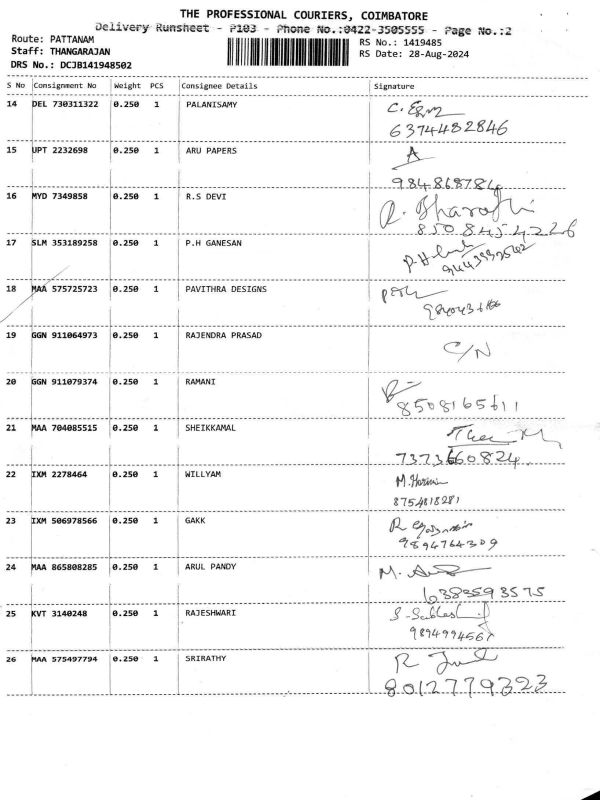 THE PROFESSIONAL COURIERS, COIMBATORE
Delivery Runsheet - P103 - Phone No.:0422-3505555 - Page No.:2
Route: PATTANAM
RS No.: 1419485
Staff: THANGARAJAN
RS Date: 28-Aug-2024
DRS No.: DCJB141948502
S No Consignment No Weight PCS Consignee Details Signature
14 DEL 730311322 0.250 1 PALANISAMY
6374482846
15 UPT 2232698 0.250 1 ARU PAPERS A
984868784
16 MYD 7349858 0.250 1 R.S DEVI R. Bharathi
8508454226
17 SLM 353189258 0.250 1 P.H GANESAN
18 MAA 575725723 0.250 1 PAVITHRA DESIGNS
19 GGN 911064973 0.250 1 RAJENDRA PRASAD C/N
20 GGN 911079374 0.250 1 RAMANI
8508165611
21 MAA 704085515 0.250 1 SHEIKKAMAL
7373660824
22 IXM 2278464 0.250 1 WILLYAM
8754818281
23 IXM 506978566 0.250 1 GAKK
9894764309
24 MAA 865808285 0.250 1 ARUL PANDY
6383593575
25 KVT 3140248 0.250 1 RAJESHWARI
26 MAA 575497794 0.250 1 SRIRATHY
8012779323